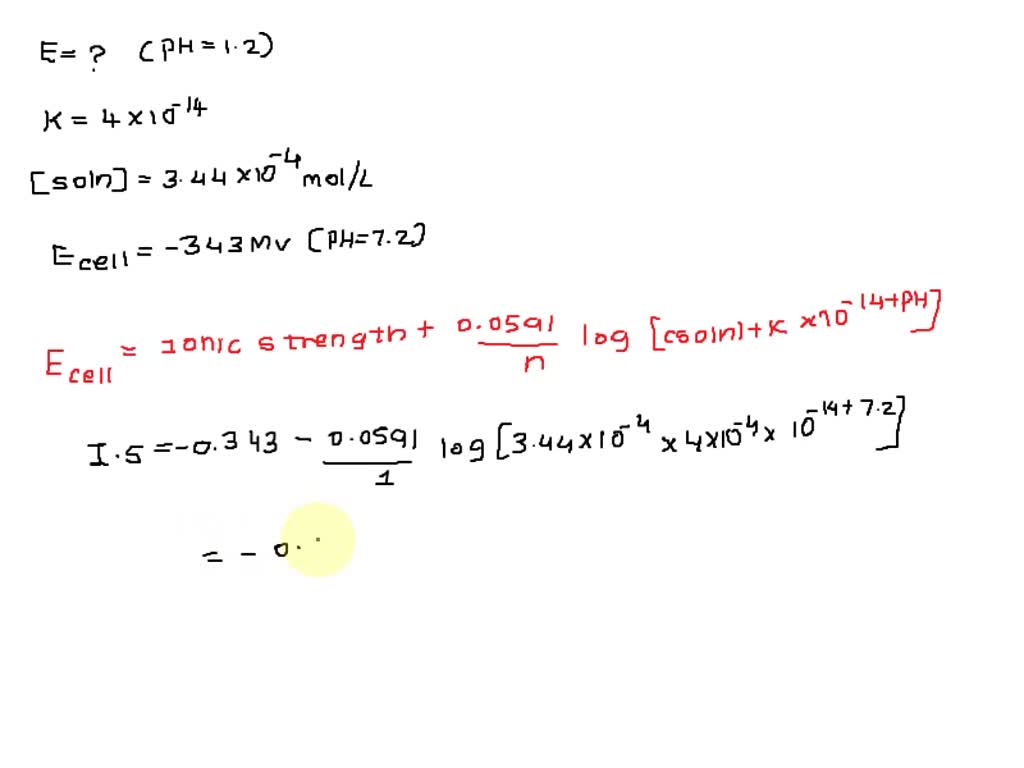 E = ? (PH = 1.2)
K = 4 × 10⁻¹⁴
[soln] = 3.44 × 10⁻⁴ mol/L
Ecell = -343 MV (PH=7.2)
Ecell = Ionic strength + 0.0591/n log [csoln) + K × 10⁻¹⁴⁺ᴾᴴ]
I.S = -0.343 - 0.0591/1 log [3.44×10⁻⁴ × 4×10⁻⁴ × 10⁻¹⁴⁺⁷·²]
= - 0.